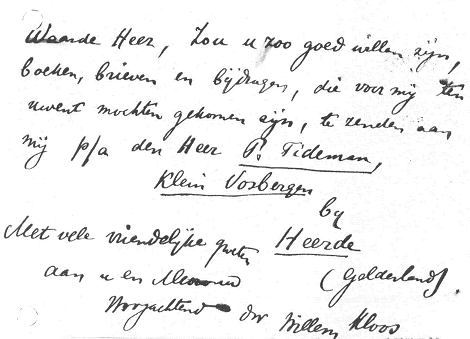 Waarde Heer, Zou u zoo goed willen zijn,
boeken, brieven en bijdragen, die voor mij ten
uwent mochten gekomen zijn, te zenden aan
mij p/a den Heer P. Tideman,
Klein Vosbergen
bij
Met vele vriendelijke groeten Heerde
aan u en Mevrouw (Gelderland).
Hoogachtend dw Willem Kloos